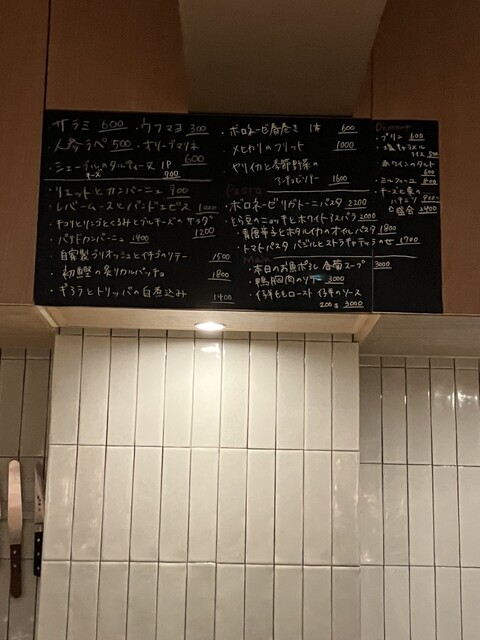 サラミ 600 ・ウフマヨ 300
人参ラペ 500 ・オリーブマリネ
600
・シェーブルのタルティーヌ 1P
チーズ 900
・リエットとカンパーニュ 900
・レバームースとパンデピス 1000
・チコリとリンゴとくるみとブルーチーズのサラダ
1200
・パテドカンパーニュ 1400
・自家製ブリオッシュとイチヂクのソテー 1500
・初鰹の炙りカルパッチョ 1800
・ギアラとトリッパの白煮込み 1400
・ボロネーゼ春巻き 1本 600
・メヒカリのフリット 1000
・ヤリイカと季節野菜の
アンチョビバター 1600
Pasta
・ボロネーゼ リガトーニパスタ 2200
・とら豆のニョッキとホワイトアスパラ 2000
・青唐辛子とホタルイカのオイルパスタ 1800
・トマトパスタ バジルとストラッチャテッラのせ 1700
Main
・本日のお魚ポワレ 春菊スープ 3000
・鴨胸肉のソテー 3000
・仔羊ももロースト 仔羊のソース
200g 3000
Dessert
・プリン 600
・塩キャラメル
アイス 500
・赤ワインのタルト
600
・ミルフィーユ 800
・チーズと
ハチミツ 900
2400